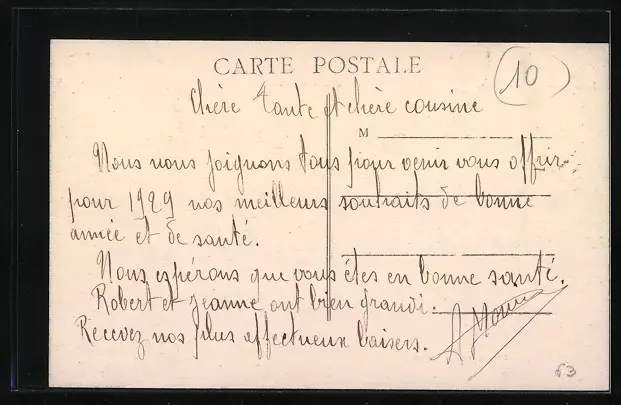 CARTE POSTALE
10
Chère Tante et chère cousine
M
Nous nous joignons tous pour venir vous offrir
pour 1929 nos meilleurs souhaits de bonne
année et de santé.
Nous espérons que vous êtes en bonne santé.
Robert et Jeanne ont bien grandi.
Recevez nos plus affectueux baisers.
63